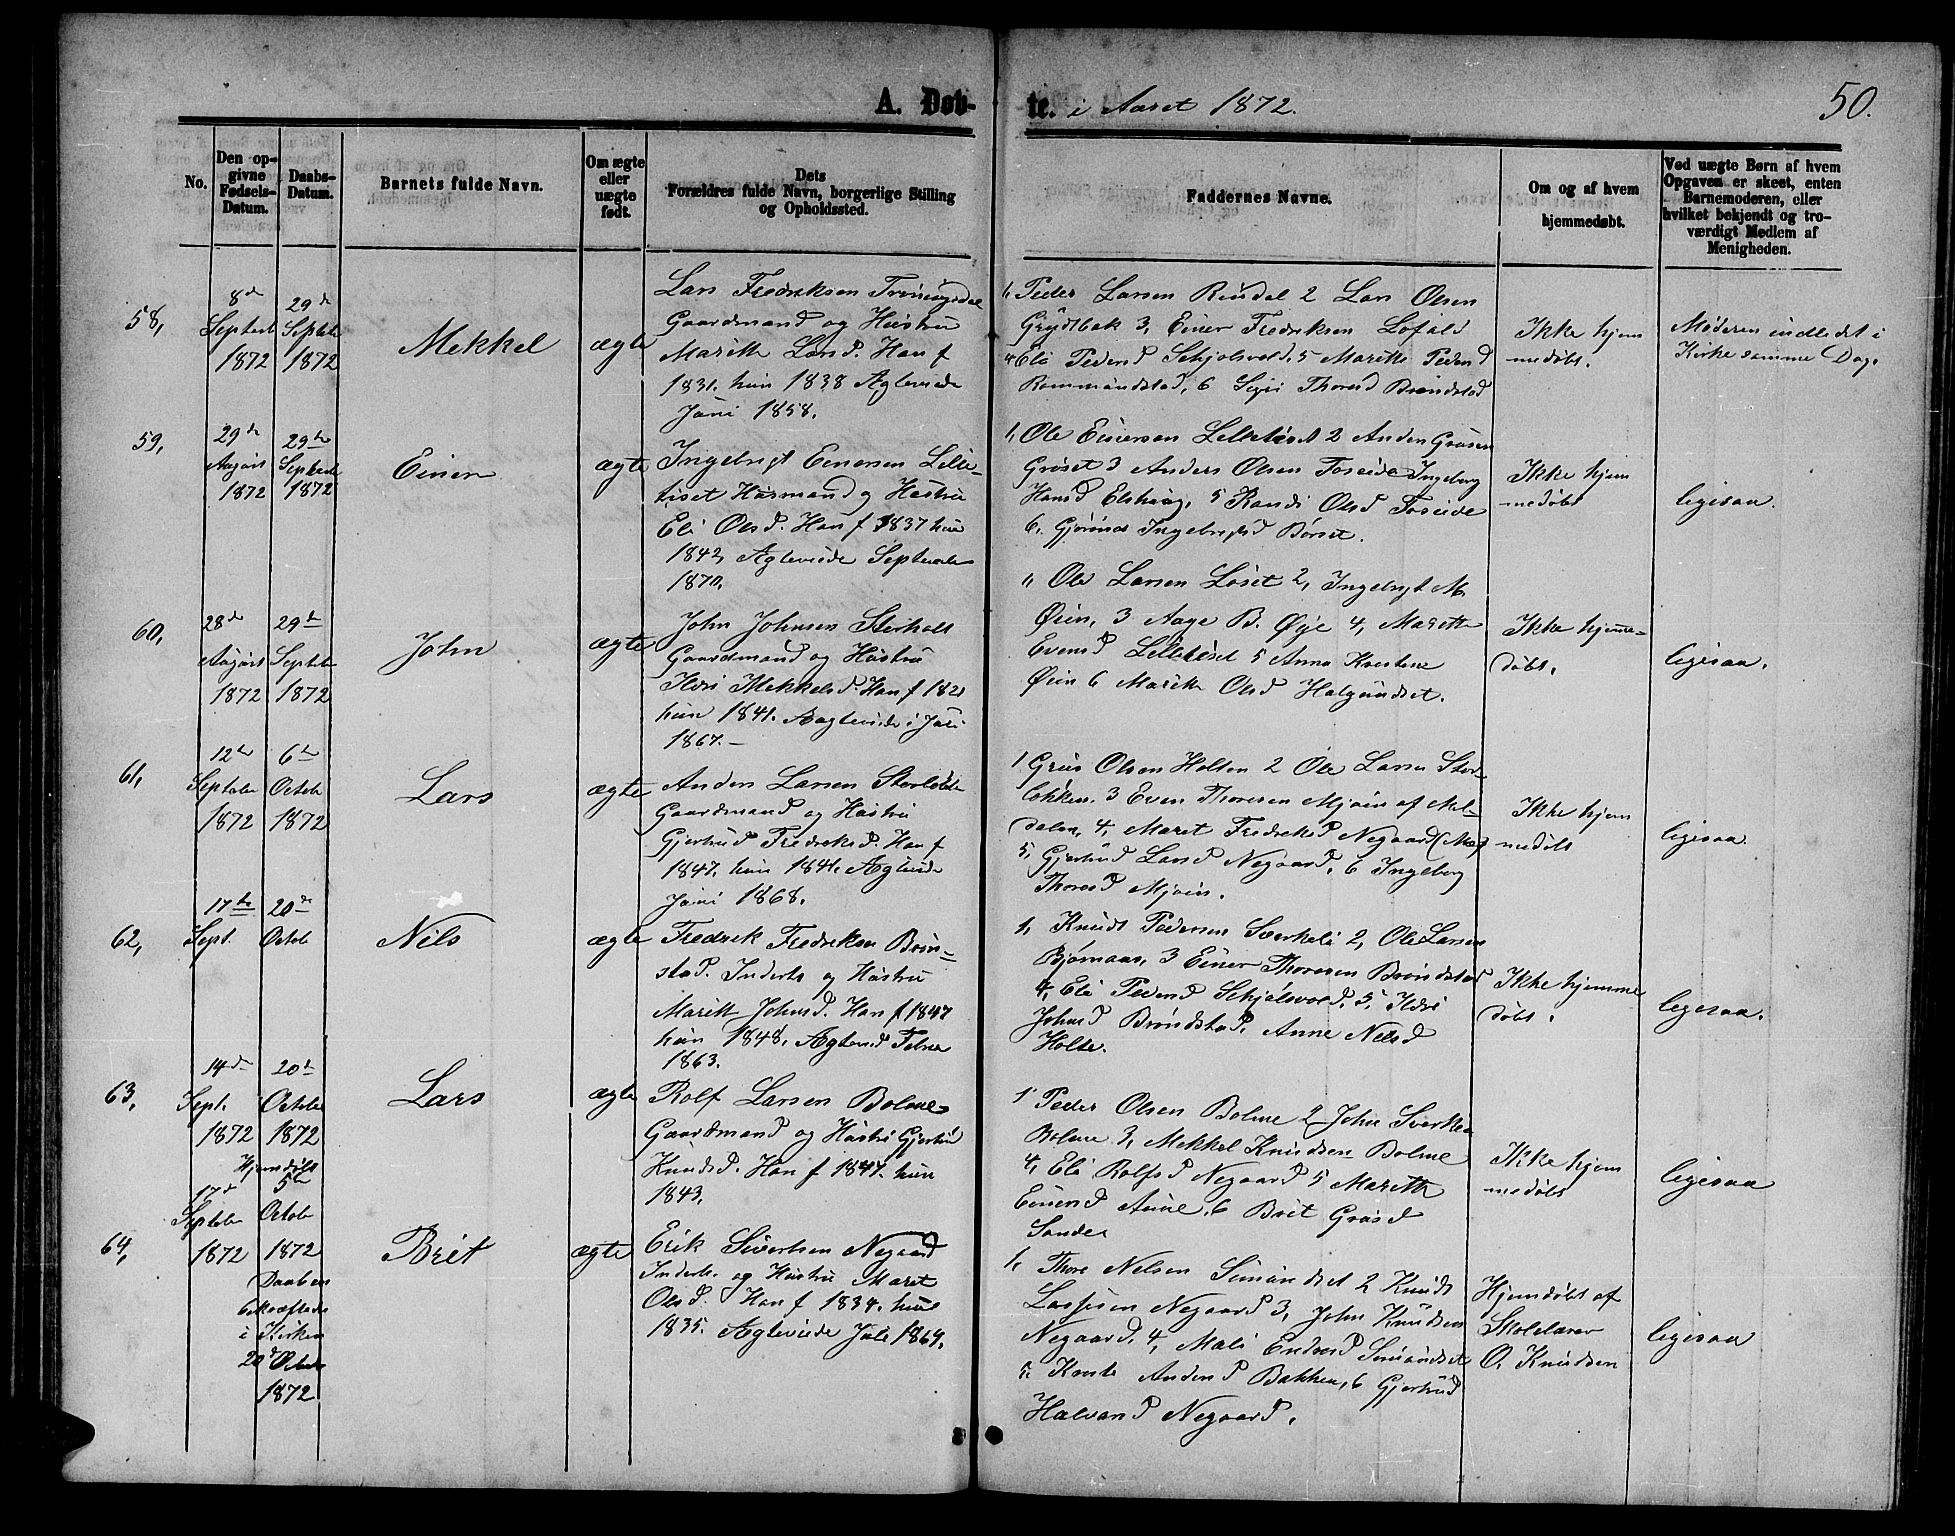 A. Døb-
te. i Aaret 1872.
50.
No.
Den op-
givne
Fødsels-
Datum.
Daabs-
Datum.
Barnets fulde Navn.
Om ægte
eller
uægte
født.
Dets
Forældres fulde Navn, borgerlige Stilling
og Opholdssted.
Faddernes Navne.
Om og af hvem
hjemmedøbt.
Ved uægte Børn af hvem
Opgaven er skeet, enten
Barnemoderen, eller
hvilket bekjendt og tro-
værdigt Medlem af
Menigheden.
58,
8de
Septerb
1872
29de
Septebr
1872
Mekkel
ægte
Lars Fredriksen
Gaardmand og Hustru
Marith Larsd. Han f
1831. hun 1838 Agtevede
Juni 1858.
1, Peder Larsen Rindal 2 Lars Olsen
Grydtbak 3, Einer Fredriksen Lofald
4 Eli Pedersd Schjølsvold, 5 Marith Pedersd
Rommundstad, 6 Sigri Thoresd Brøndstad
Ikke hjem
medøbt.
Moderen indledet i
Kirke samme Dag.
59,
29de
August
1872
29de
Septebr
1872
Einer
ægte
Ingebrigt Einersen Lille-
tiset Husmand og Hustru
Eli Olsd. Han f 1837 hun
1842, Agteviede September
1870.
1, Ole Einersen Lilletiset 2 Anders
Grøset 3 Anders Olsen Foseide Ingeborg
Hansd Elshaug, 5 Randi Olsd Foseide
6, Gjørond Ingebrigtsd Børset.
Ikke hjem
medøbt
ligesaa.
60,
28de
August
1872
29de
Septebr
1872
John
ægte
John Johnsen Storholt
Gaardmand og Hustru
Ildri Mekkelsd. Han f 182
hun 1841. Agtevede i Juli
1867.-
1, Ole Larsen Løset 2, Ingebrigt M
Øien, 3 Aage B. Øye 4, Marith
Evensd Lilletiset 5 Anna Krestene
Øien 6 Marith Olsd Halgundset.
Ikke hjemme-
døbt.
ligesaa.
61,
12te
Septebr
1872
6te
Octobr
1872
Lars
ægte
Anders Larsen Storløkk
Gaardmand og Hustru
Gjertrud Fredriksd. Han f
1847. hun 1841. Agtevede
Juni 1868.
1 Olsen Holten 2 Ole Larsen Stor-
løkken. 3 Even Thoresen Mjøen af Mel-
dalen, 4, Maret Fredriksd Negaard (Mo)
5, Gjertrud Larsd Negaard, 6 Ingeborg
Thoresd Mjøen.
Ikke hjem
medøbt
ligesaa.
62,
17de
Sept.
20de
Octob
Nils
ægte
Fredrik Fredriksen Brøn-
stad. Inderts og Hustru
Marith Johnsd. Han f 1847
hun 1848. Agteved Febr
1863.
1, Knudt Pedersen Sverkeli 2, Ole Larsen
Bjørnaas, 3 Einer Thoresen Brøndstad
4, Eli Pedersd Schjølsvold, 5, Ildri
Johnsd Brøndstad, Anne Nilsd
Holte.
Ikke hjemme
døbt.
ligesaa.
63,
14de
Sept.
1872
20de
Octobr
1872
Lars
ægte
Rolf Larsen Bolme-
Gaardmand og Hustru Gjertrud
Knudsd. Han f 1847. hun
1843.
1 Peder Olsen Bolme 2 John Sverke
Bolme 3, Mekkel Knudsen Bolme
4, Eli Rolfsd Negaard 5 Marith
Einersd Aune, 6 Brit Grøsd
Sande
Ikke hjem
medøbt
ligesaa
64,
17de
Septebr
1872
Hjemdøbt
5te
Octob
1872
Daaben
bekræftede
i Kirken
20de Octob
1872.
Brit
ægte
Erik Sivertsen Negaard
Inderts. og Hustru Maret
Olsd. Han f 1834. hun
1835. Agtevede Juli 1869.
1, Thore Nilsen Simundset 2 Knudt
Larsen Negaard 3, John Knudsen
Negaard. 4, Mali Endresd Simundset
5, Kreste Andersd Bakken, 6 Gjertrud
Halvarsd Negaard.
Hjemdøbt af
Skolelærer
O. Knudsen
ligesaa